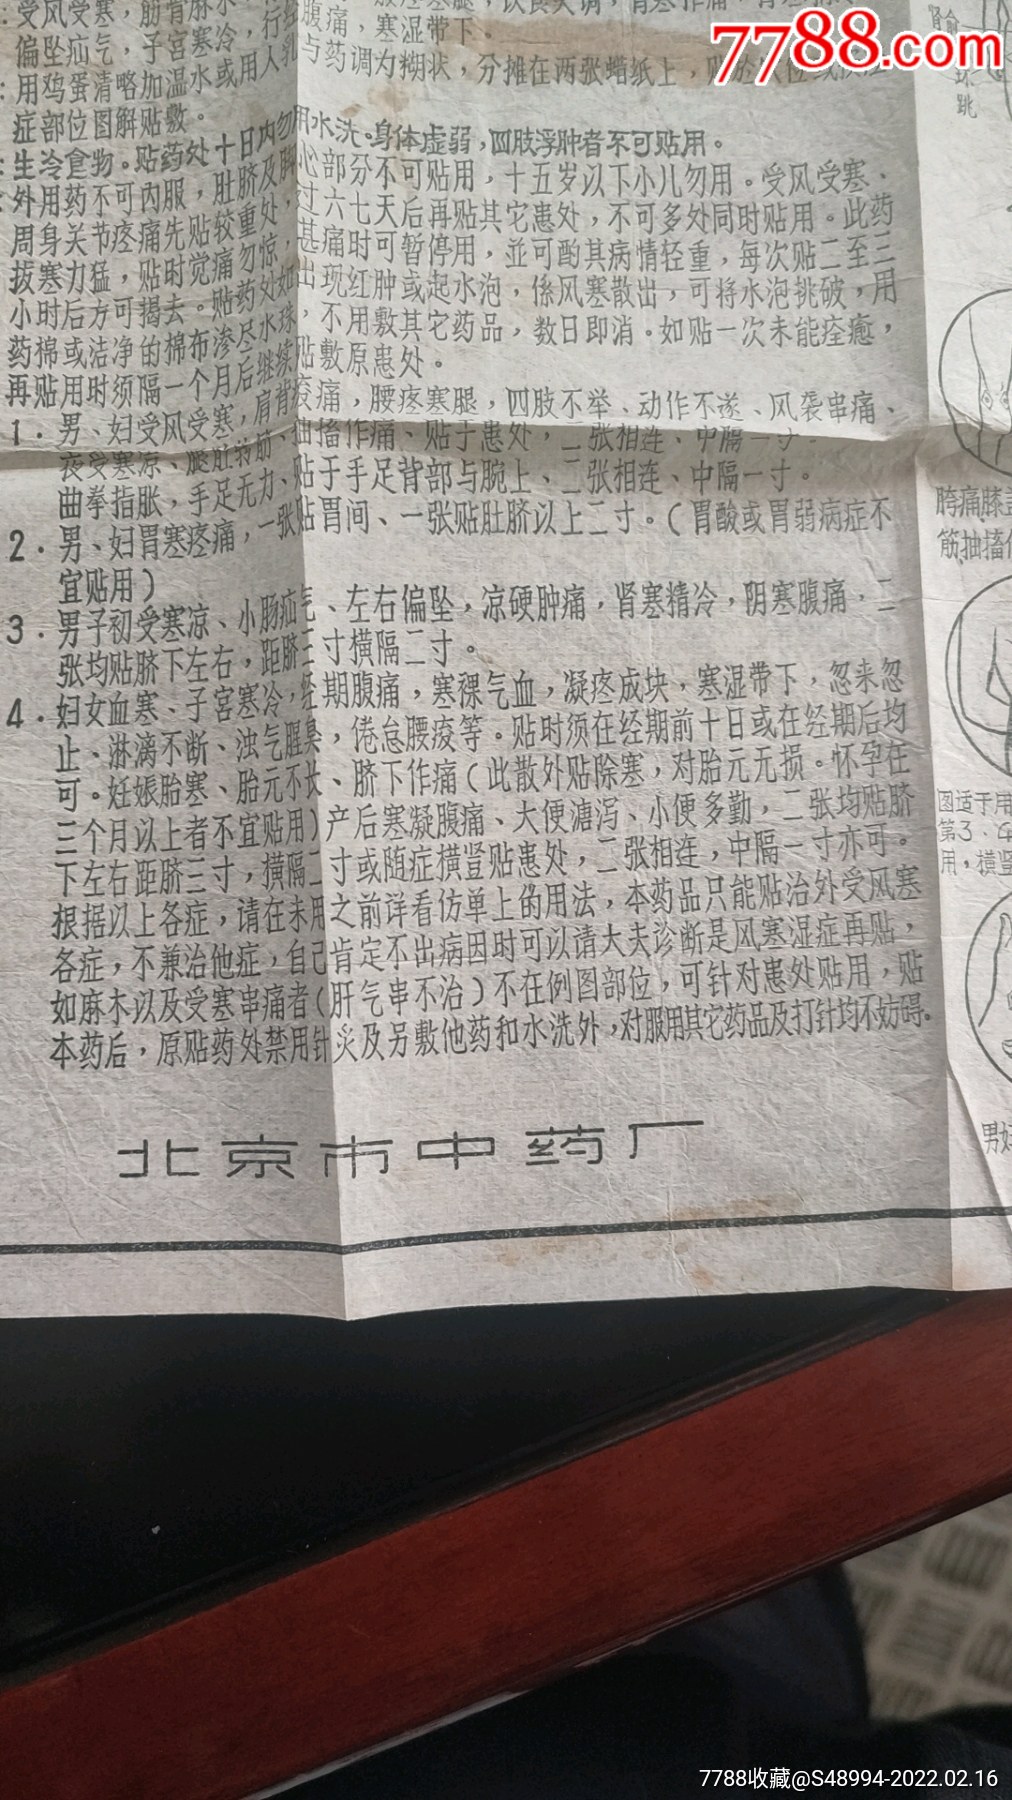 7788.com
受风受寒，筋骨麻木
偏坠疝气，子宫寒冷，行经腹痛，寒湿带下。
：用鸡蛋清略加温水或用人乳与药调为糊状，分摊在两张蜡纸上，
症部位图解贴敷。
：生冷食物。贴药处十日内勿用水洗。身体虚弱，四肢浮肿者不可贴用。
：外用药不可内服，肚脐及脚心部分不可贴用，十五岁以下小儿勿用。受风受寒、
周身关节疼痛先贴较重处，过六七天后再贴其它患处，不可多处同时贴用。此药
拔寒力猛，贴时觉痛勿惊，甚痛时可暂停用，並可酌其病情轻重，每次贴二至三
小时后方可揭去。贴药处如出现红肿或起水泡，係风寒散出，可将水泡挑破，用
药棉或洁净的棉布渗尽水珠，不用敷其它药品，数日即消。如贴一次未能痊癒，
再贴用时须隔一个月后继续贴敷原患处。
1．男、妇受风受寒，肩背疫痛，腰疼寒腿，四肢不举、动作不遂、风袭串痛、
夜受寒凉、腿肚转筋、抽搐作痛、贴于患处，二张相连、中隔一寸．
曲拳指胀，手足无力、贴于手足背部与腕上、二张相连、中隔一寸。
2．男、妇胃寒疼痛，一张贴胃间、一张贴肚脐以上二寸。（胃酸或胃弱病症不
宜贴用）
3．男子初受寒凉、小肠疝气、左右偏坠，凉硬肿痛，肾寒精冷，阴寒腹痛，二
张均贴脐下左右，距脐三寸横隔二寸。
4．妇女血寒、子宫寒冷，经期腹痛，寒裸气血，凝疼成块，寒湿带下，忽来忽
止、淋漓不断、浊气腥臭，倦怠腰疫等。贴时须在经期前十日或在经期后均
可。妊娠胎寒、胎元不长、脐下作痛（此散外贴除寒，对胎元无损。怀孕在
三个月以上者不宜贴用）产后寒凝腹痛、大便溏泻、小便多勤，二张均贴脐
下左右距脐三寸，横隔二寸或随症横竖贴患处，二张相连，中隔一寸亦可。
根据以上各症，请在未用之前详看仿单上的用法，本药品只能贴治外受风寒
各症，不兼治他症，自己肯定不出病因时可以请大夫诊断是风寒湿症再贴，
如麻木以及受寒串痛者（肝气串不治）不在例图部位，可针对患处贴用，贴
本药后，原贴药处禁用针灸及另敷他药和水洗外，对服用其它药品及打针均不妨碍．
北京市中药厂
环跳
胯痛膝盖
筋抽搐
图适于用
第3、4
用，横竖
男女
7788收藏@S48994-2022.02.16